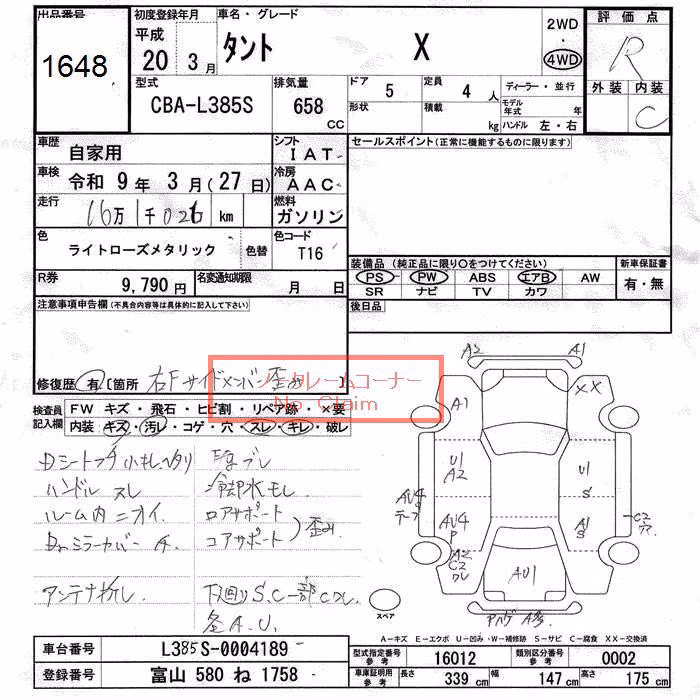 出品番号
1648
初度登録年月
平成
20 3月
車名・グレード
タント X
2WD
・
4WD
評価点
R
外装 内装
C
型式
CBA-L385S
排気量
658
CC
ドア 5
形状
定員 4 人
積載 kg
ディーラー・並行
モデル年式 年
ハンドル 左・右
車歴
自家用
シフト
IAT
セールスポイント(正常に機能するものに限ります)
車検
令和 9年 3月(27日)
冷房
AAC
走行
16万1千026 km
燃料
ガソリン
色
ライトローズメタリック
色替
色コード
T16
装備品 (純正品に限り○をつけてください)
PS PW ABS エアB AW
SR ナビ TV カワ
新車保証書
有・無
R券
9,790円
名変通知期限
月 日
後日品
注意事項申告欄(不具合内容等は具体的に記入して下さい)
修復歴 有 [箇所 右Fサイドメンバ歪み ]
ノークレームコーナー
No Claim
検査員
記入欄
FW キズ・飛石・ヒビ割・リペア跡・×要
内装 キズ・汚レ・コゲ・穴・スレ・キレ・破レ
ハンドル スレ
冷却水モレ
ルーム内ニオイ
ロアサポート
コアサポート
歪み
アンテナ折レ
下廻りS.C一部Cアレ
各A.U.
A2
A1
A1
XX
U1
A2
U1
S
AU4
テープ
AU4
P
A1
S
C2
A2
C2
ワレ
AU1
スペア
A=キズ E=エクボ U=凹み・W=補修跡 S=サビ C=腐食 XX=交換済
車台番号
L385S-0004189
登録番号
富山 580 ね 1758
型式指定番号
参考
16012
類別区分番号
参考
0002
車庫証明用
参考
長さ
339 cm
幅
147 cm
高さ
175 cm